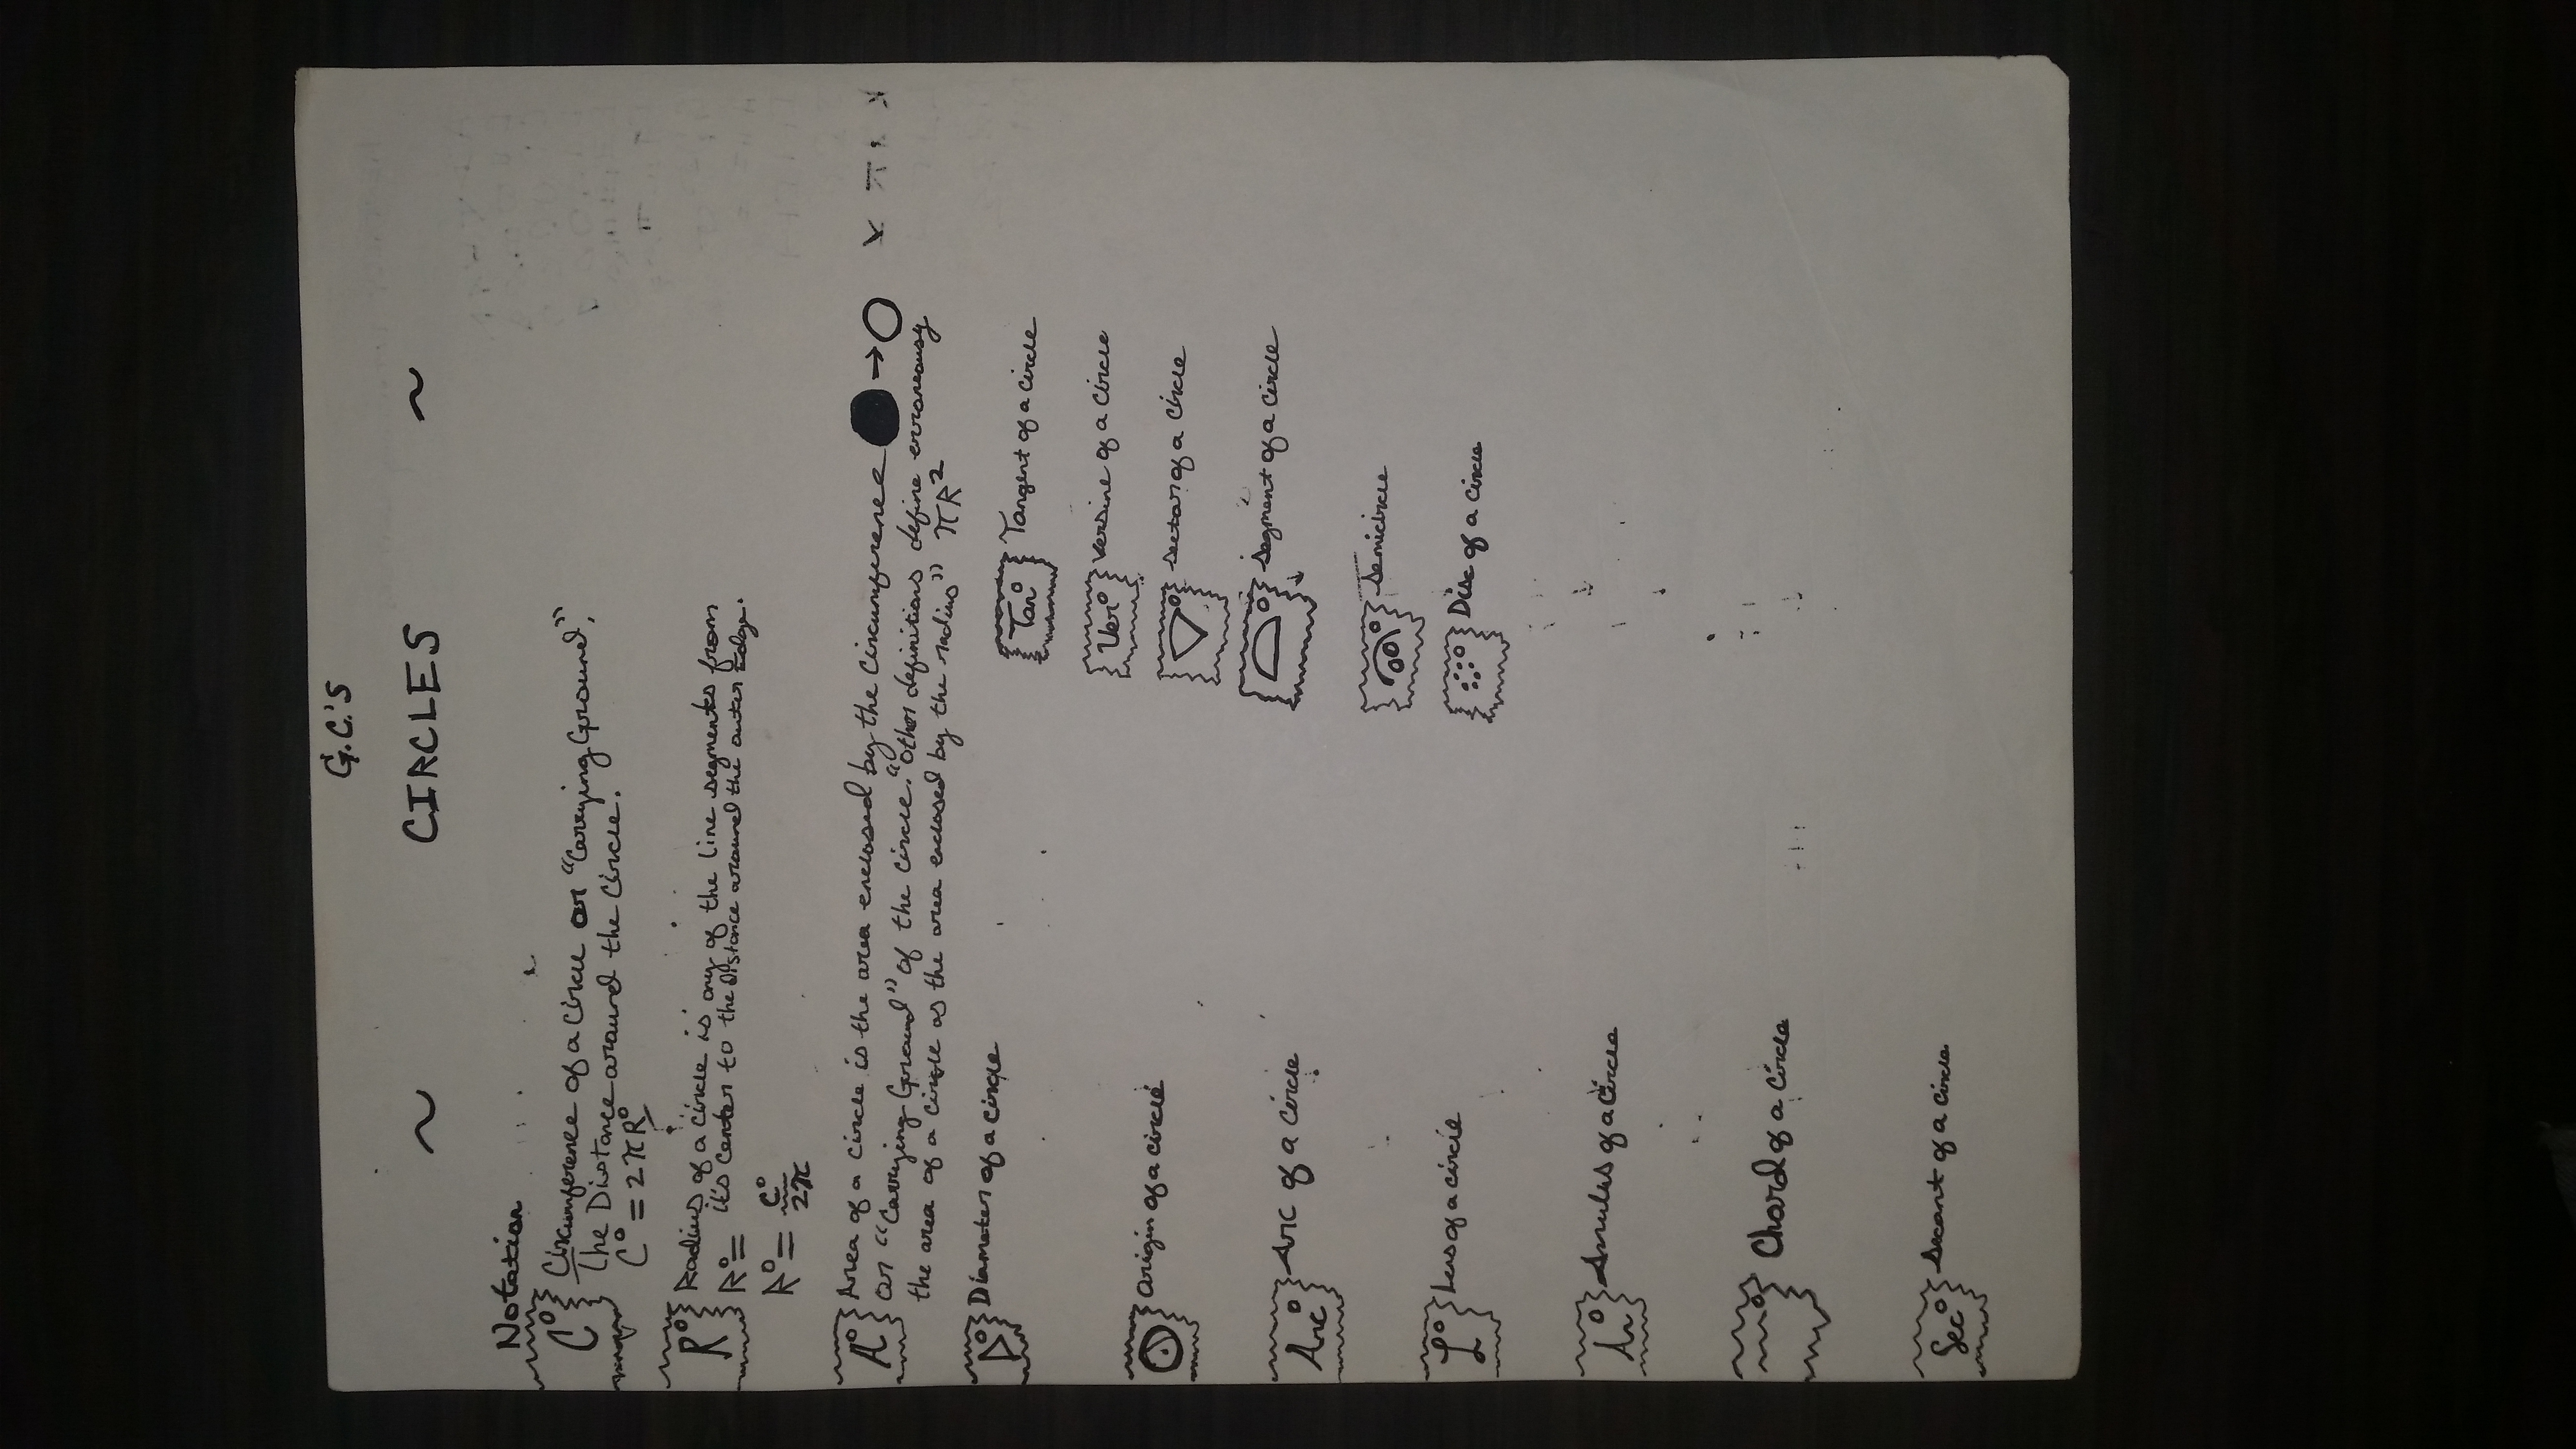 G.C.'S
~ CIRCLES ~
Notation
C° Circumference of a Circle or "Carrying Ground",
The Distance around the Circle.
C° = 2πR°
R° Radius of a circle is any of the line segments from
R° = it's center to the distance around the outer Edge.
R° = C°/2π
A° Area of a circle is the area enclosed by the Circumference → 
or "Carrying Ground" of the circle. "Other definitions define erroneously
the area of a circle as the area enclosed by the radius" πR²
D° Diameter of a circle
Origin of a circle
Arc° Arc of a circle
L° of a circle
A° Annulus of a Circle
Chord of a Circle
Sec° Secant of a Circle
Tan° Tangent of a circle
Ver° Versine of a Circle
Sector of a Circle
Segment of a Circle
Semicircle
Disc of a Circle